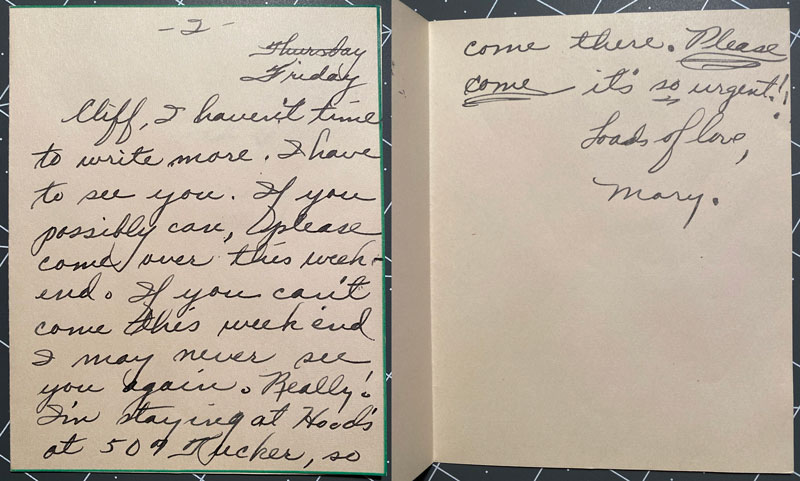 -2-
Thursday
Friday
Cliff, I haven't time
to write more. I have
to see you. If you
possibly can, please
come over this week-
end. If you can't
come this week end
I may never see
you again. Really!
I'm staying at Hood's
at 509 Tucker, so
come there. Please
come it's so urgent!!
Loads of love,
Mary.